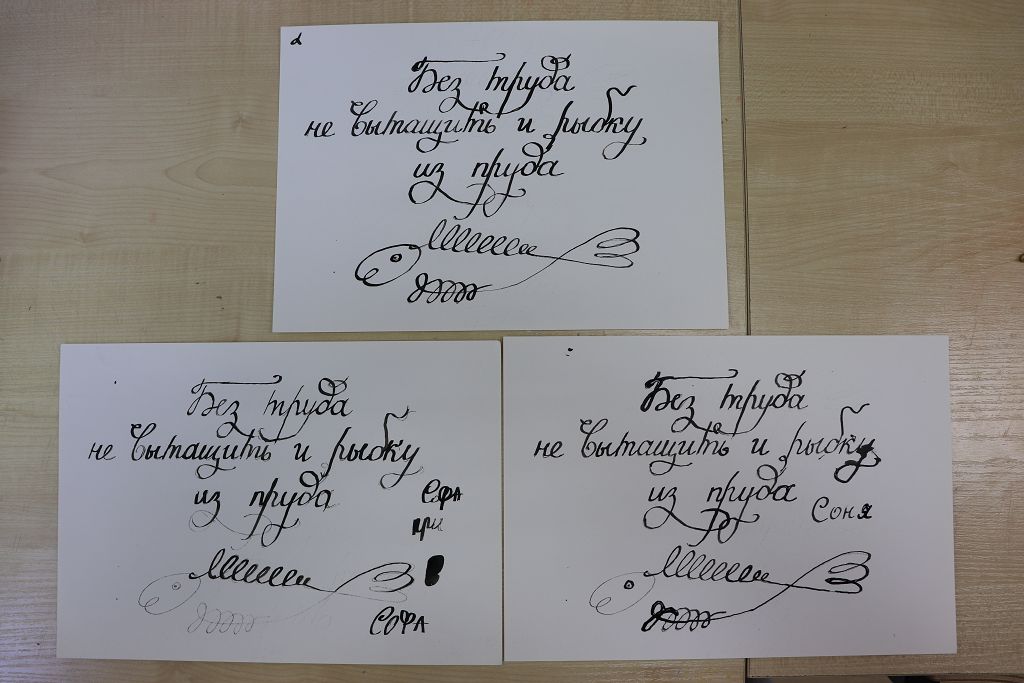 Без труда
не вытащить и рыбку
из пруда
Без труда
не вытащить и рыбку
из пруда
СОФА
при
СОФА
Без труда
не вытащить и рыбку
из пруда
Соня